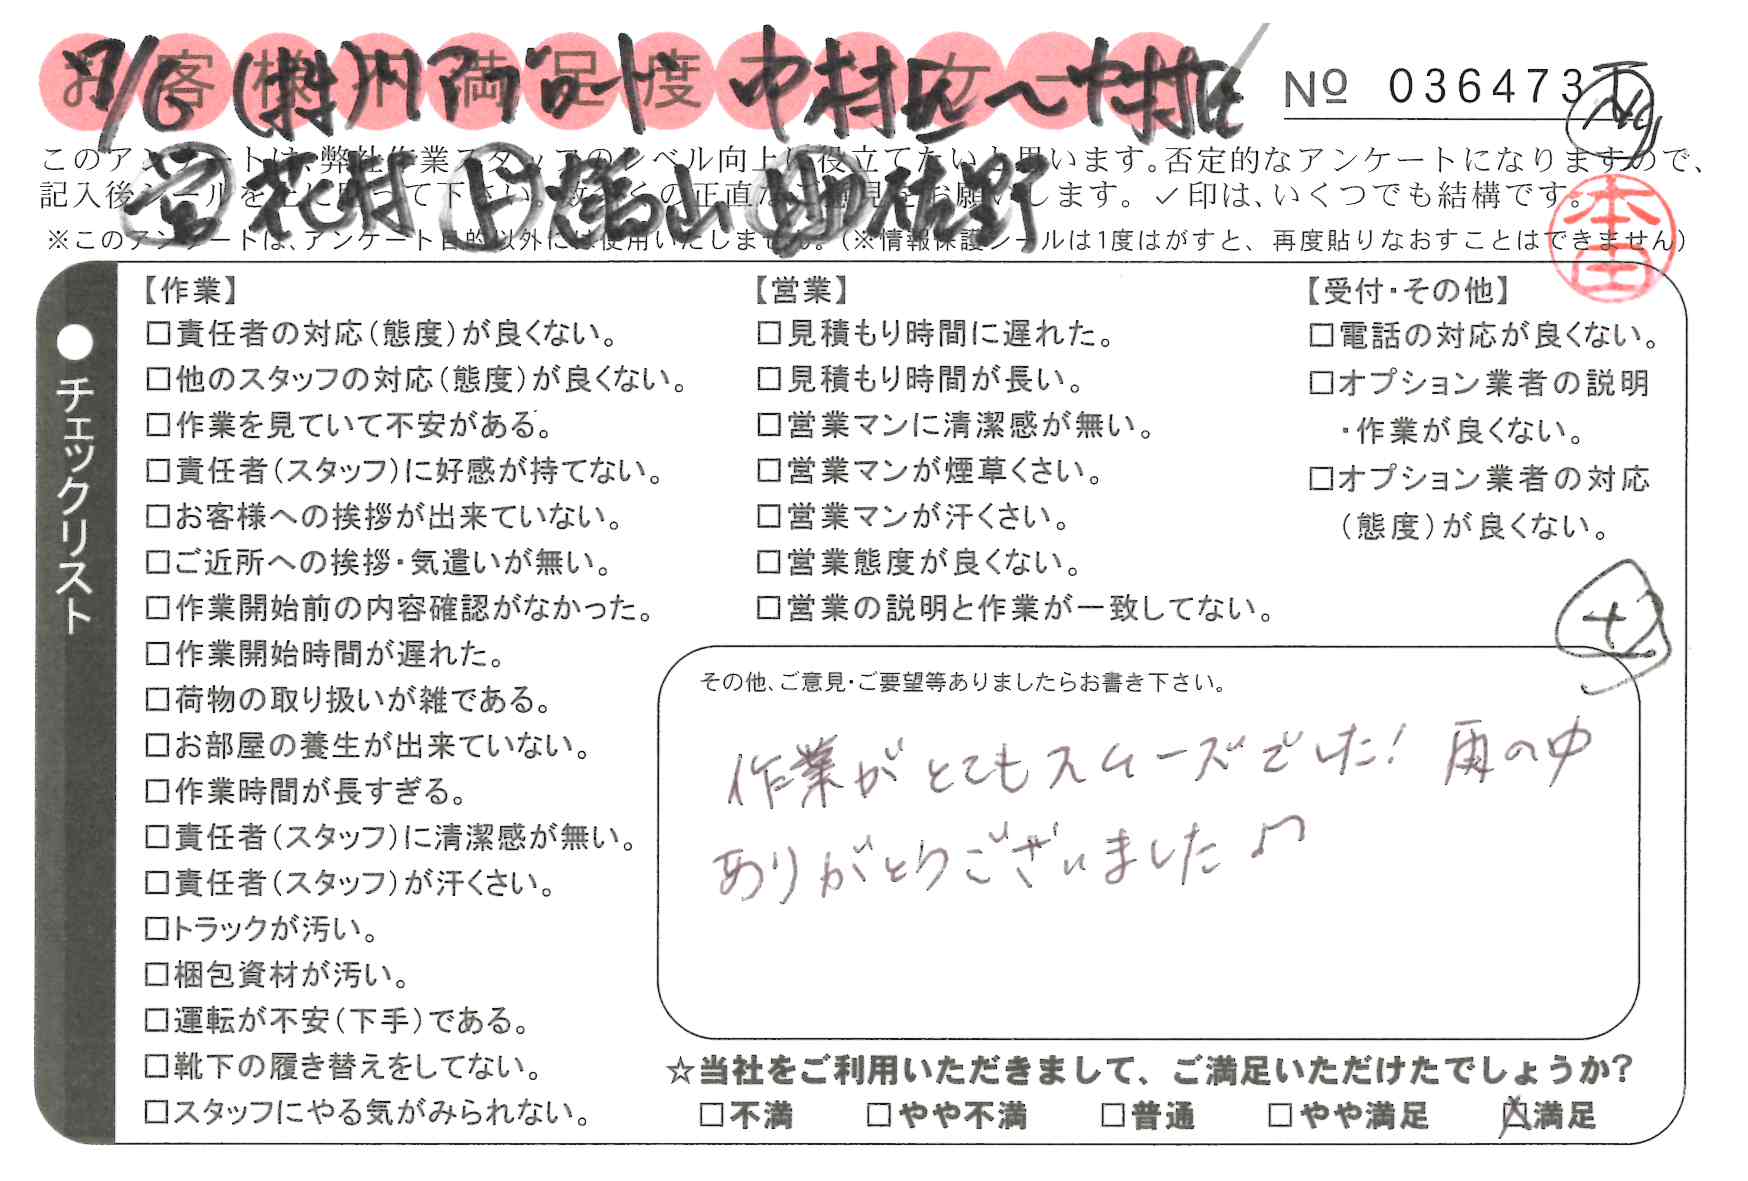 お客様不満足度アンケート
7/6 中村区〜中村区
No 036473
このアンケートは、弊社作業スタッフのレベル向上に役立てたいと思います。否定的なアンケートになりますので、
記入後シールを上に貼って下さい。数多くの正直なご意見をお願いします。✓印は、いくつでも結構です。
花村 佐野
※このアンケートは、アンケート目的以外には使用いたしません。(※情報保護シールは1度はがすと、再度貼りなおすことはできません)
本田
●チェックリスト
【作業】
□責任者の対応(態度)が良くない。
□他のスタッフの対応(態度)が良くない。
□作業を見ていて不安がある。
□責任者(スタッフ)に好感が持てない。
□お客様への挨拶が出来ていない。
□ご近所への挨拶・気遣いが無い。
□作業開始前の内容確認がなかった。
□作業開始時間が遅れた。
□荷物の取り扱いが雑である。
□お部屋の養生が出来ていない。
□作業時間が長すぎる。
□責任者(スタッフ)に清潔感が無い。
□責任者(スタッフ)が汗くさい。
□トラックが汚い。
□梱包資材が汚い。
□運転が不安(下手)である。
□靴下の履き替えをしてない。
□スタッフにやる気がみられない。
【営業】
□見積もり時間に遅れた。
□見積もり時間が長い。
□営業マンに清潔感が無い。
□営業マンが煙草くさい。
□営業マンが汗くさい。
□営業態度が良くない。
□営業の説明と作業が一致してない。
【受付・その他】
□電話の対応が良くない。
□オプション業者の説明
・作業が良くない。
□オプション業者の対応
(態度)が良くない。
その他、ご意見・ご要望等ありましたらお書き下さい。
作業がとてもスムーズでした! 雨の中
ありがとうございました♪
☆当社をご利用いただきまして、ご満足いただけたでしょうか?
□不満 □やや不満 □普通 □やや満足 □満足